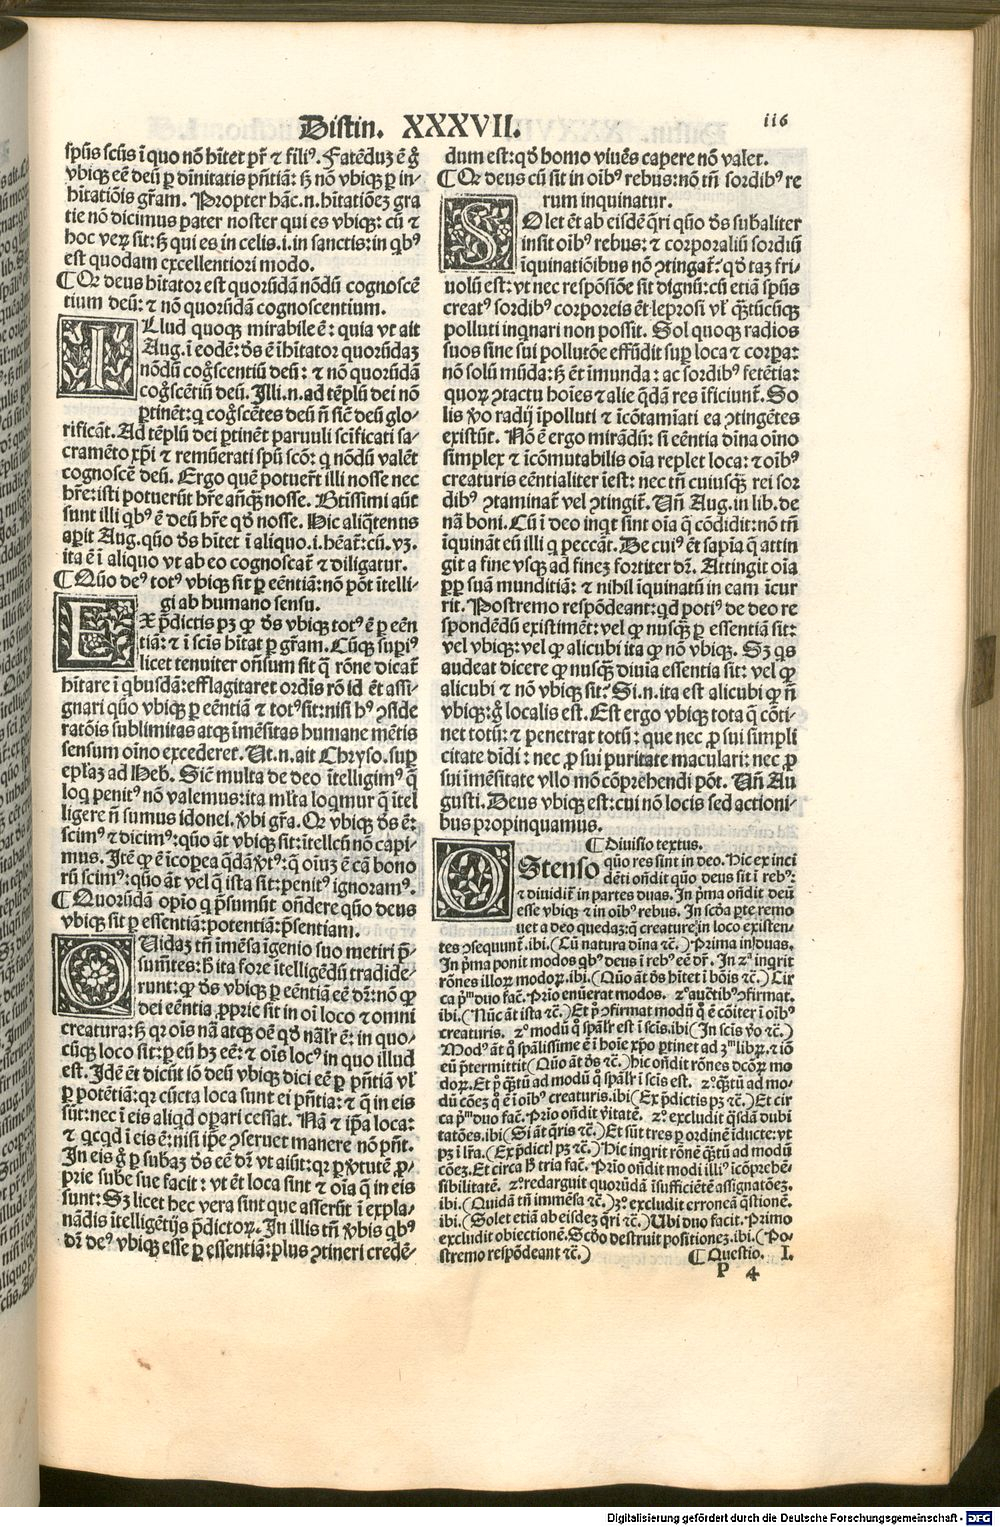 Distin. XXXVII.
116
spūs scūs ī quo nō hītet pr̄ ⁊ filiꝰ. Fatēduꝫ ē ḡ
vbiqꝫ eē deū ꝑ dīnitatis pn̄tiā: sꝫ nō vbiqꝫ ꝑ in-
hitatiōis gr̄am. Propter hāc .n. hitatiōeꝫ gra
tie nō dicimus pater noster qui es vbiqꝫ: cū ⁊
hoc veꝝ sit: sꝫ qui es in celis .i. in sanctis: in qbꝰ
est quodam excellentiori modo.
¶ Qꝛ deus hītator est quorūdā nōdū cognoscē
tium deū: ⁊ nō quorūdā cognoscentium.
ILlud quoqꝫ mirabile ē: quia vt ait
Aug. ī eodē: ds̄ ē īhītator quorūdaꝫ
nōdū cog̊scentiū deū: ⁊ nō quorūdā
cog̊scētiū deū. Illi .n. ad tēplū dei nō
ꝑtinēt: q cog̊scētes deū n̄ siē deū glo-
rificāt. Ad tēplū dei ꝑtinēt paruuli scīficati sa-
cramēto xp̄i ⁊ remūerati spū scō: q nōdū valēt
cognoscē deū. Ergo quē potuer̄t illi nosse nec
hr̄e: isti potuerūt hr̄e añqꝫ nosse. Btīssimi aūt
sunt illi qbꝰ ē deū hr̄e qd̄ nosse. Hic aliqtenus
aꝑit Aug. quō ds̄ hītet ī aliquo .i. hēat̄: cū .vꝫ.
ita ē ī aliquo vt ab eo cognoscat̄ ⁊ diligatur.
¶ Quō deꝰ totꝰ vbiqꝫ sit ꝑ eēntiā: nō pōt ītelli-
gi ab humano sensu.
EX p̄dictis pꝫ ꝙ ds̄ vbiqꝫ totꝰ ē ꝑ eēn
tiā: ⁊ ī scīs hītat ꝑ gr̄am. Cūqꝫ supiꝰ
licet tenuiter oñsum sit q̄ rōne dicat̄
hītare ī qbusdā: efflagitaret ordīs rō id ēt assi-
gnari quō vbiqꝫ ꝑ eēntiā ⁊ totꝰ sit: nisi hꝰ ꝯside
ratōis sublimitas atqꝫ īmēsitas humane mētis
sensum oīno excederet. Ut .n. ait Chryso. suꝑ
epl̄aꝫ ad Heb. Sic̄ multa de deo ītelligimꝰ q̄
loq penitꝰ nō valemus: ita ml̄ta loqmur q̄ ītel
ligere n̄ sumus idonei. v̄bi gr̄a. Qꝛ vbiqꝫ ds̄ ē:
scimꝰ ⁊ dicimꝰ: quō āt vbiqꝫ sit: ītellcū nō capi-
mus. Itē ꝙ ē īcorpea q̄dā v̄tꝰ: q̄ oiuꝫ ē cā bono
rū scimꝰ: quō āt vel q̄ ista sit: penitꝰ ignoramꝰ.
¶ Quorūdā opio q p̄sumūt oñdere quō deus
vbiqꝫ sit ꝑ essentiā: potentiā: p̄sentiam.
QUidaꝫ tn̄ īmēsa īgenio suo metiri p̄-
sumētes: h̄ ita fore ītelligēdū tradide-
runt: ꝙ ds̄ vbiqꝫ ꝑ eēntiā eē dr̄: nō ꝙ
dei eēntia ꝓprie sit in oī loco ⁊ omni
creatura: sꝫ qꝛ oīs nā atqꝫ oē qd̄ nāl̄r ē: in quo-
cūqꝫ loco sit: ꝑ eū hꝫ eē: ⁊ oīs locꝰ in quo illud
est. Idē ēt dicūt iō deū vbiqꝫ dici eē ꝑ pn̄tiā vl̄
ꝑ potētiā: qꝛ cūcta loca sunt ei pn̄tia: ⁊ q̄ in eis
sūt: nec ī eis aliqd oꝑari cessat. Nā ⁊ ip̄a loca:
⁊ qcqd ī eis ē: nisi ip̄e ꝯseruet manere nō pn̄t.
In eis ḡ ꝑ subaꝫ ds̄ eē dr̄ vt aiūt: qꝛ ꝑ v̄tutē ꝓ-
prie sube sue facit: vt ēt loca sint ⁊ oīa q̄ in eis
sunt: Sꝫ licet hec vera sint que asserūt ī expla-
nādis ītelligētijs p̄dictoꝝ. In illis tn̄ v̄bis qbꝰ
dr̄ deꝰ vbiqꝫ esse ꝑ essentiā: plus ꝯtineri credē-
dum est: qd̄ homo viuēs capere nō valet.
¶ Qꝛ deus cū sit in oībꝰ rebus: nō tn̄ sordibꝰ re
rum inquinatur.
SOlet ēt ab eisdē q̄ri quō ds̄ subaliter
insit oībꝰ rebus: ⁊ corporaliū sordiū
īquinatiōibus nō ꝯtingat̄: qd̄ taꝫ fri-
uolū est: vt nec respōsiōe sit dignū: cū etiā spūs
creatꝰ sordibꝰ corporeis ēt leprosi vl̄ q̄ꝫtūcūqꝫ
polluti inqnari non possit. Sol quoqꝫ radios
suos sine sui pollutōe effūdit suꝑ loca ⁊ corpa:
nō solū mūda: sꝫ ēt īmunda: ac sordibꝰ fetētia:
quoꝝ ꝯtactu hoīes ⁊ alie q̄dā res īficiunt̄. So
lis v̄o radij īpolluti ⁊ īcōtamīati ea ꝯtingētes
existūt. Nō ē ergo mirādū: si eēntia dīna oīno
simplex ⁊ icōmutabilis oīa replet loca: ⁊ oībꝰ
creaturis eēntialiter īest: nec tn̄ cuiusqꝫ rei sor
dibꝰ ꝯtaminat̄ vel ꝯtingit̄. Uñ Aug. in lib. de
nā boni. Cū ī deo inqt sint oīa q̄ cōdidit: nō tn̄
īquināt eū illi q peccāt. De cuiꝰ ēt sapīa q̄ attin
git a fine vsqꝫ ad fineꝫ fortiter dr̄. Attingit oīa
ꝓpꝑ suā munditiā: ⁊ nihil īquinatū in eam īcur
rit. Postremo respōdeant: qd potiꝰ de deo re
spondēdū existimēt: vel ꝙ nusqꝫ ꝑ essentiā sit:
vel vbiqꝫ: vel ꝙ alicubi ita ꝙ nō vbiqꝫ. Sꝫ qs
audeat dicere ꝙ nusqꝫ diuīa essentia sit: vel ꝙ
alicubi ⁊ nō vbiqꝫ sit: Si .n. ita est alicubi ꝙ n̄
vbiqꝫ: ḡ localis est. Est ergo vbiqꝫ tota q̄ cōti-
net totū: ⁊ penetrat totū: que nec ꝓ sui simpli
citate dīdi: nec ꝓ sui puritate maculari: nec ꝓ
sui īmēsitate vllo mō cōprehendi pōt. Uñ Au
gusti. Deus vbiqꝫ est: cui nō locis sed actioni-
bus propinquamus.
¶ Diuisio textus.
OStenso quō res sint in deo. Hic ex inci
dēti oñdit quō deus sit ī rebꝰ:
⁊ diuidit̄ in partes duas. In p̄ma oñdit deū
esse vbiqꝫ ⁊ in oībꝰ rebus. In scōa ꝑte remo
uet a deo quedaꝫ: q̄ creature in loco existen-
tes ꝯsequunt̄ .ibi. (Cū natura dīna ⁊c̄.) Prima in duas.
In p̄ma ponit modos qbꝰ deus ī rebꝰ eē dr̄. In 2ᵃ inqrit
rōnes illoꝝ modoꝝ .ibi. (Quō āt ds̄ hītet ī hōis ⁊c̄.) Cir
ca p̄ᵐ duo fac̄. Prīo enūerat modos. 2º auc̄tibꝰ ꝯfirmat.
ibi. (Nūc āt ista ⁊c̄.) Et p̄ ꝯfirmat modū q̄ ē cōiter ī oībꝰ
creaturis. 2º modū q̊ spāl̄r est ī scīs .ibi (In scīs v̄o ⁊c̄.)
Modꝰ āt q̊ spālissime ē ī hoīe xp̄o ꝑtinet ad 3ᵐ libꝝ. ⁊ iō
eū p̄termittit (Quō āt ds̄ ⁊c̄.) hic oñdit rōnes dcōꝝ mo
doꝝ. Et p̄ q̄ꝫtū ad modū q̊ spāl̄r ī scīs est. 2º q̄ꝫtū ad mo-
dū cōeꝫ q̊ ē ī oībꝰ creaturis .ibi (Ex p̄dictis pꝫ ⁊c̄.) Et cir
ca p̄ᵐ duo fac̄. Prīo oñdit v̄itatē. 2º. excludit q̄sdā dubi
tatōes .ibi (Si āt q̄ris ⁊c̄.) Et sūt tres ꝑ ordinē īducte: vt
pꝫ ī lr̄a. (Ex p̄dictꝭ pꝫ ⁊c̄.) Hic inqrit rōnē q̄ꝫtū ad modū
cōeꝫ. Et circa h̄ tria fac̄. Prīo oñdit modi illiꝰ icōprehē-
sibilitatē. 2º. redarguit quorūdā īsufficiētē assignatōeꝫ.
ibi. (Quidā tn̄ immēsa ⁊c̄.) 3º. excludit erroneā q̄stionē.
ibi. (Solet etiā ab eisdeꝫ q̄ri ⁊c̄.) Ubi duo facit. Primo
excludit obiectionē. Scōo destruit positioneꝫ .ibi. (Po-
stremo respōdeant ⁊c̄.) ¶ Questio. I.
P 4
Digitalisierung gefördert durch die Deutsche Forschungsgemeinschaft - DFG